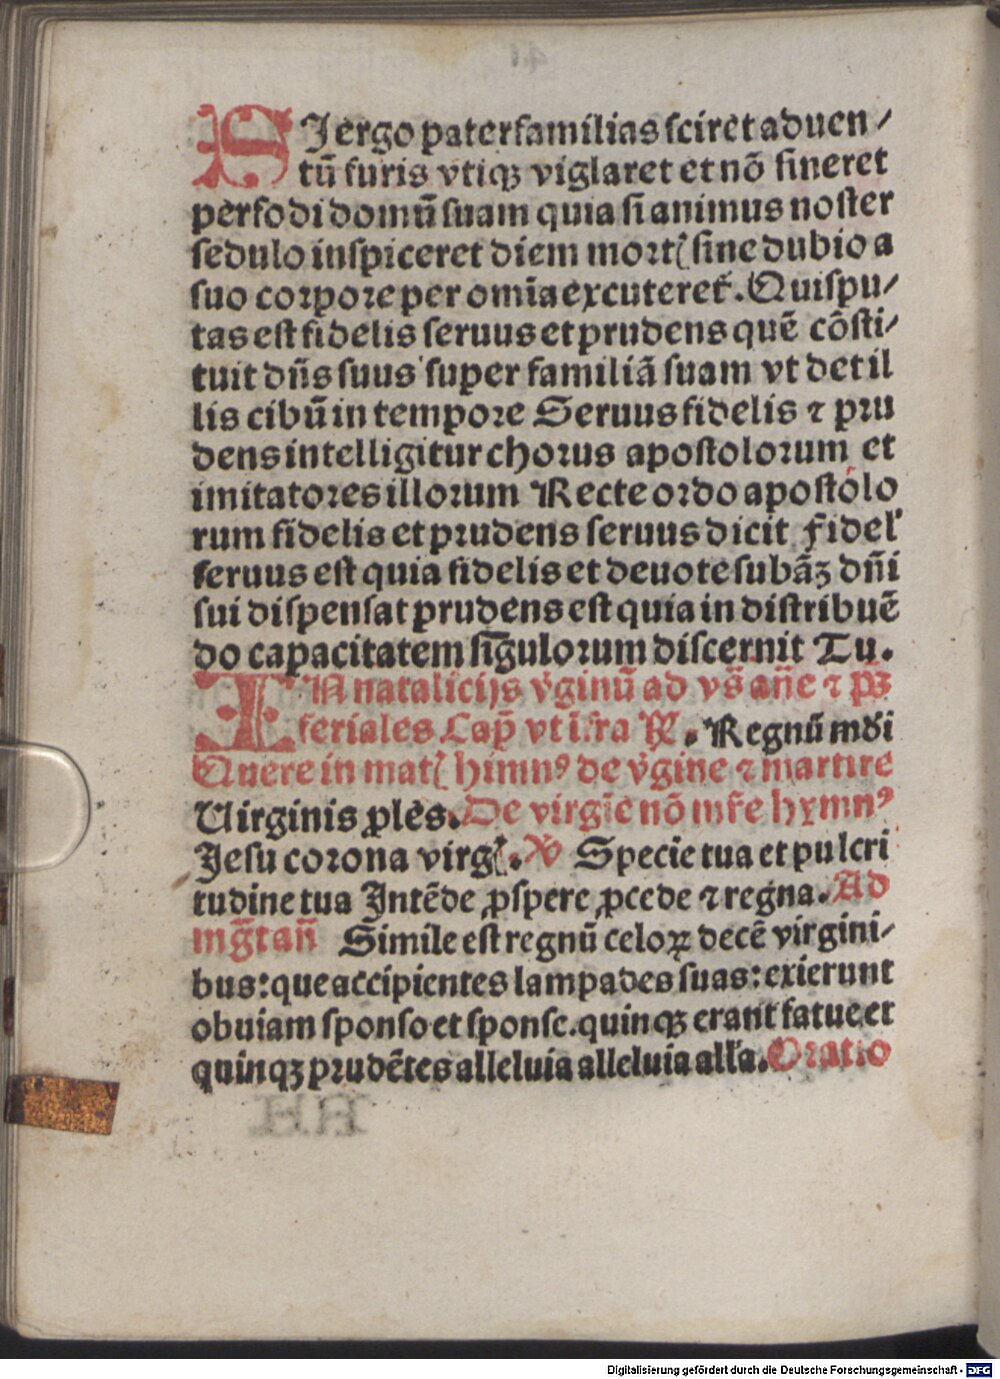 SI ergo paterfamilias sciret aduen/
tū furis vtiqꝫ viglaret et nō sineret
perfodi domū suam quia si animus noster
sedulo inspiceret diem mortꝭ sine dubio a
suo corpore per omīa excuteret᷑. Quispu/
tas est fidelis seruus et prudens quē cōsti/
tuit dn̄s suus super familiā suam vt det il
lis cibū in tempore Seruus fidelis ⁊ pru
dens intelligitur chorus apostolorum et
imitatores illorum Recte ordo apostolo
rum fidelis et prudens seruus dicit Fidel'
seruus est quia fidelis et deuote subāꝫ dn̄i
sui dispensat prudens est quia in distribuē
do capacitatem sīgulorum discernit Tu.
IN natalicijs v̓ginū ad vs̄ an̄e ⁊ p̄ꝫ
feriales Cap̄ vt īfra ℟. Regnū mūdi
Quere in matꝭ himnꝰ de v̓gine ⁊ martire
Uirginis ꝓles. De virgīe nō mr̄e hymnꝰ
Jesu corona virgꝭ. ℣ Specie tua et pulcri
tudine tua Intēde ꝓspere ꝓcede ⁊ regna. Ad
mg̅tan̅ Simile est regnū celoꝝ decē virgini/
bus: que accipientes lampades suas: exierunt
obuiam sponso et sponse. quinqꝫ erant fatue et
quinqꝫ prudētes alleluia alleluia all'a. Oratio
Digitalisierung gefördert durch die Deutsche Forschungsgemeinschaft - DFG